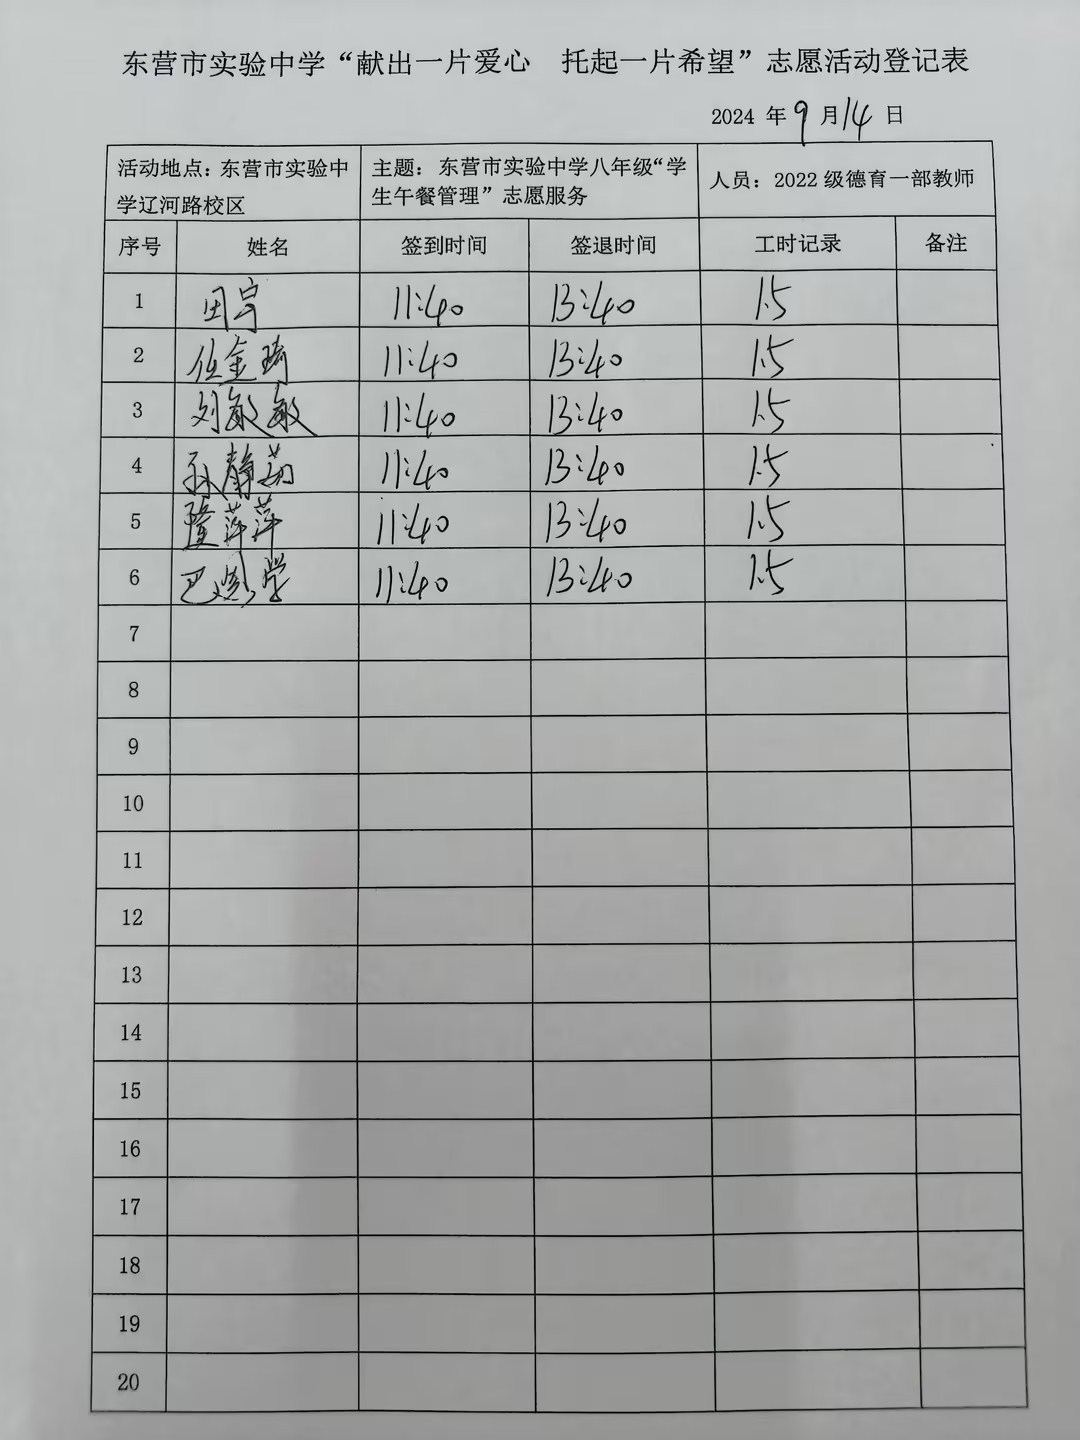 东营市实验中学“献出一片爱心 托起一片希望”志愿活动登记表
2024 年 9 月 14 日
活动地点：东营市实验中学辽河路校区 主题：东营市实验中学八年级“学生午餐管理”志愿服务 人员：2022 级德育一部教师
序号 姓名 签到时间 签退时间 工时记录 备注
1 田宁 11:40 13:40 1.5
2 伍金琦 11:40 13:40 1.5
3 刘敏敏 11:40 13:40 1.5
4 孙静茹 11:40 13:40 1.5
5 隆萍萍 11:40 13:40 1.5
6 巴学 11:40 13:40 1.5
7
8
9
10
11
12
13
14
15
16
17
18
19
20